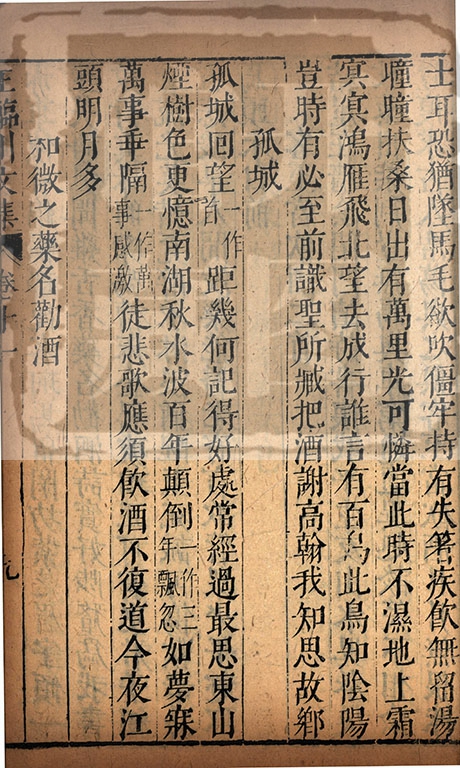 士耳恐猶墜馬毛欲吹僵牢持有失箸疾飲無留湯
曈曈扶桑日出有萬里光可憐當此時不濕地上霜
冥冥鴻雁飛北望去成行誰言有百鳥此鳥知陰陽
豈時有必至前識聖所臧把酒謝高翰我知思故鄉
孤城
孤城回望一作首距幾何記得好處常經過最思東山
煙樹色更憶南湖秋水波百年顛倒一作三年飄忽如夢寐
萬事乖隔一作萬事感激徒悲歌應須飲酒不復道今夜江
頭明月多
和微之藥名勸酒
王臨川文集 卷十一 九